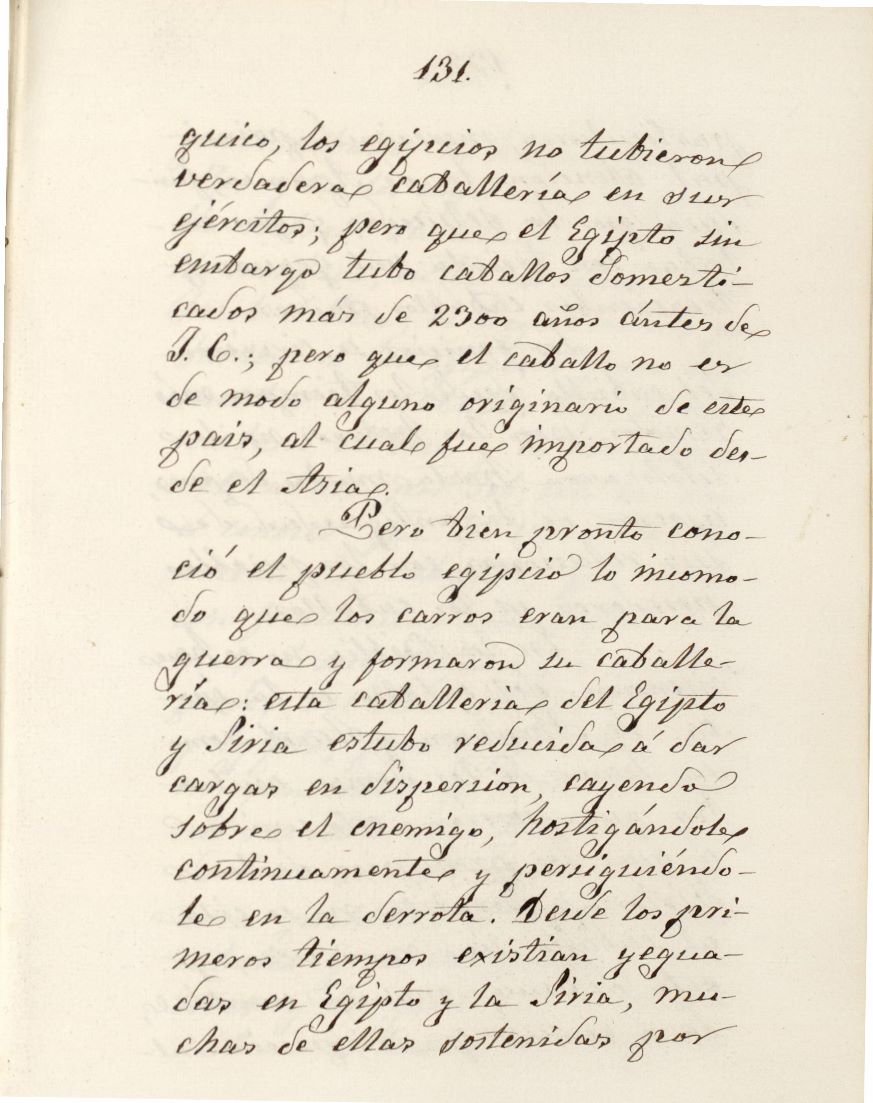 131.
guico, los egipcios no tubieron
verdadera caballería en sus
ejércitos; pero que el Egipto sin
embargo tubo caballos domesti-
cados más de 2300 años ántes de
J. C.; pero que el caballo no es
de modo alguno originario de este
pais, al cual fue importado des-
de el Asia.
Pero bien pronto cono-
ció el pueblo egipcio lo incomo-
do que los carros eran para la
guerra y formaron su caballe-
ría: esta caballeria del Egipto
y Siria estubo reducida á dar
cargas en dispersion, cayendo
sobre el enemigo, hostigándole
continuamente y persiguiéndo-
le en la derrota. Desde los pri-
meros tiempos existian yegua-
das en Egipto y la Siria, mu-
chas de ellas sostenidas por